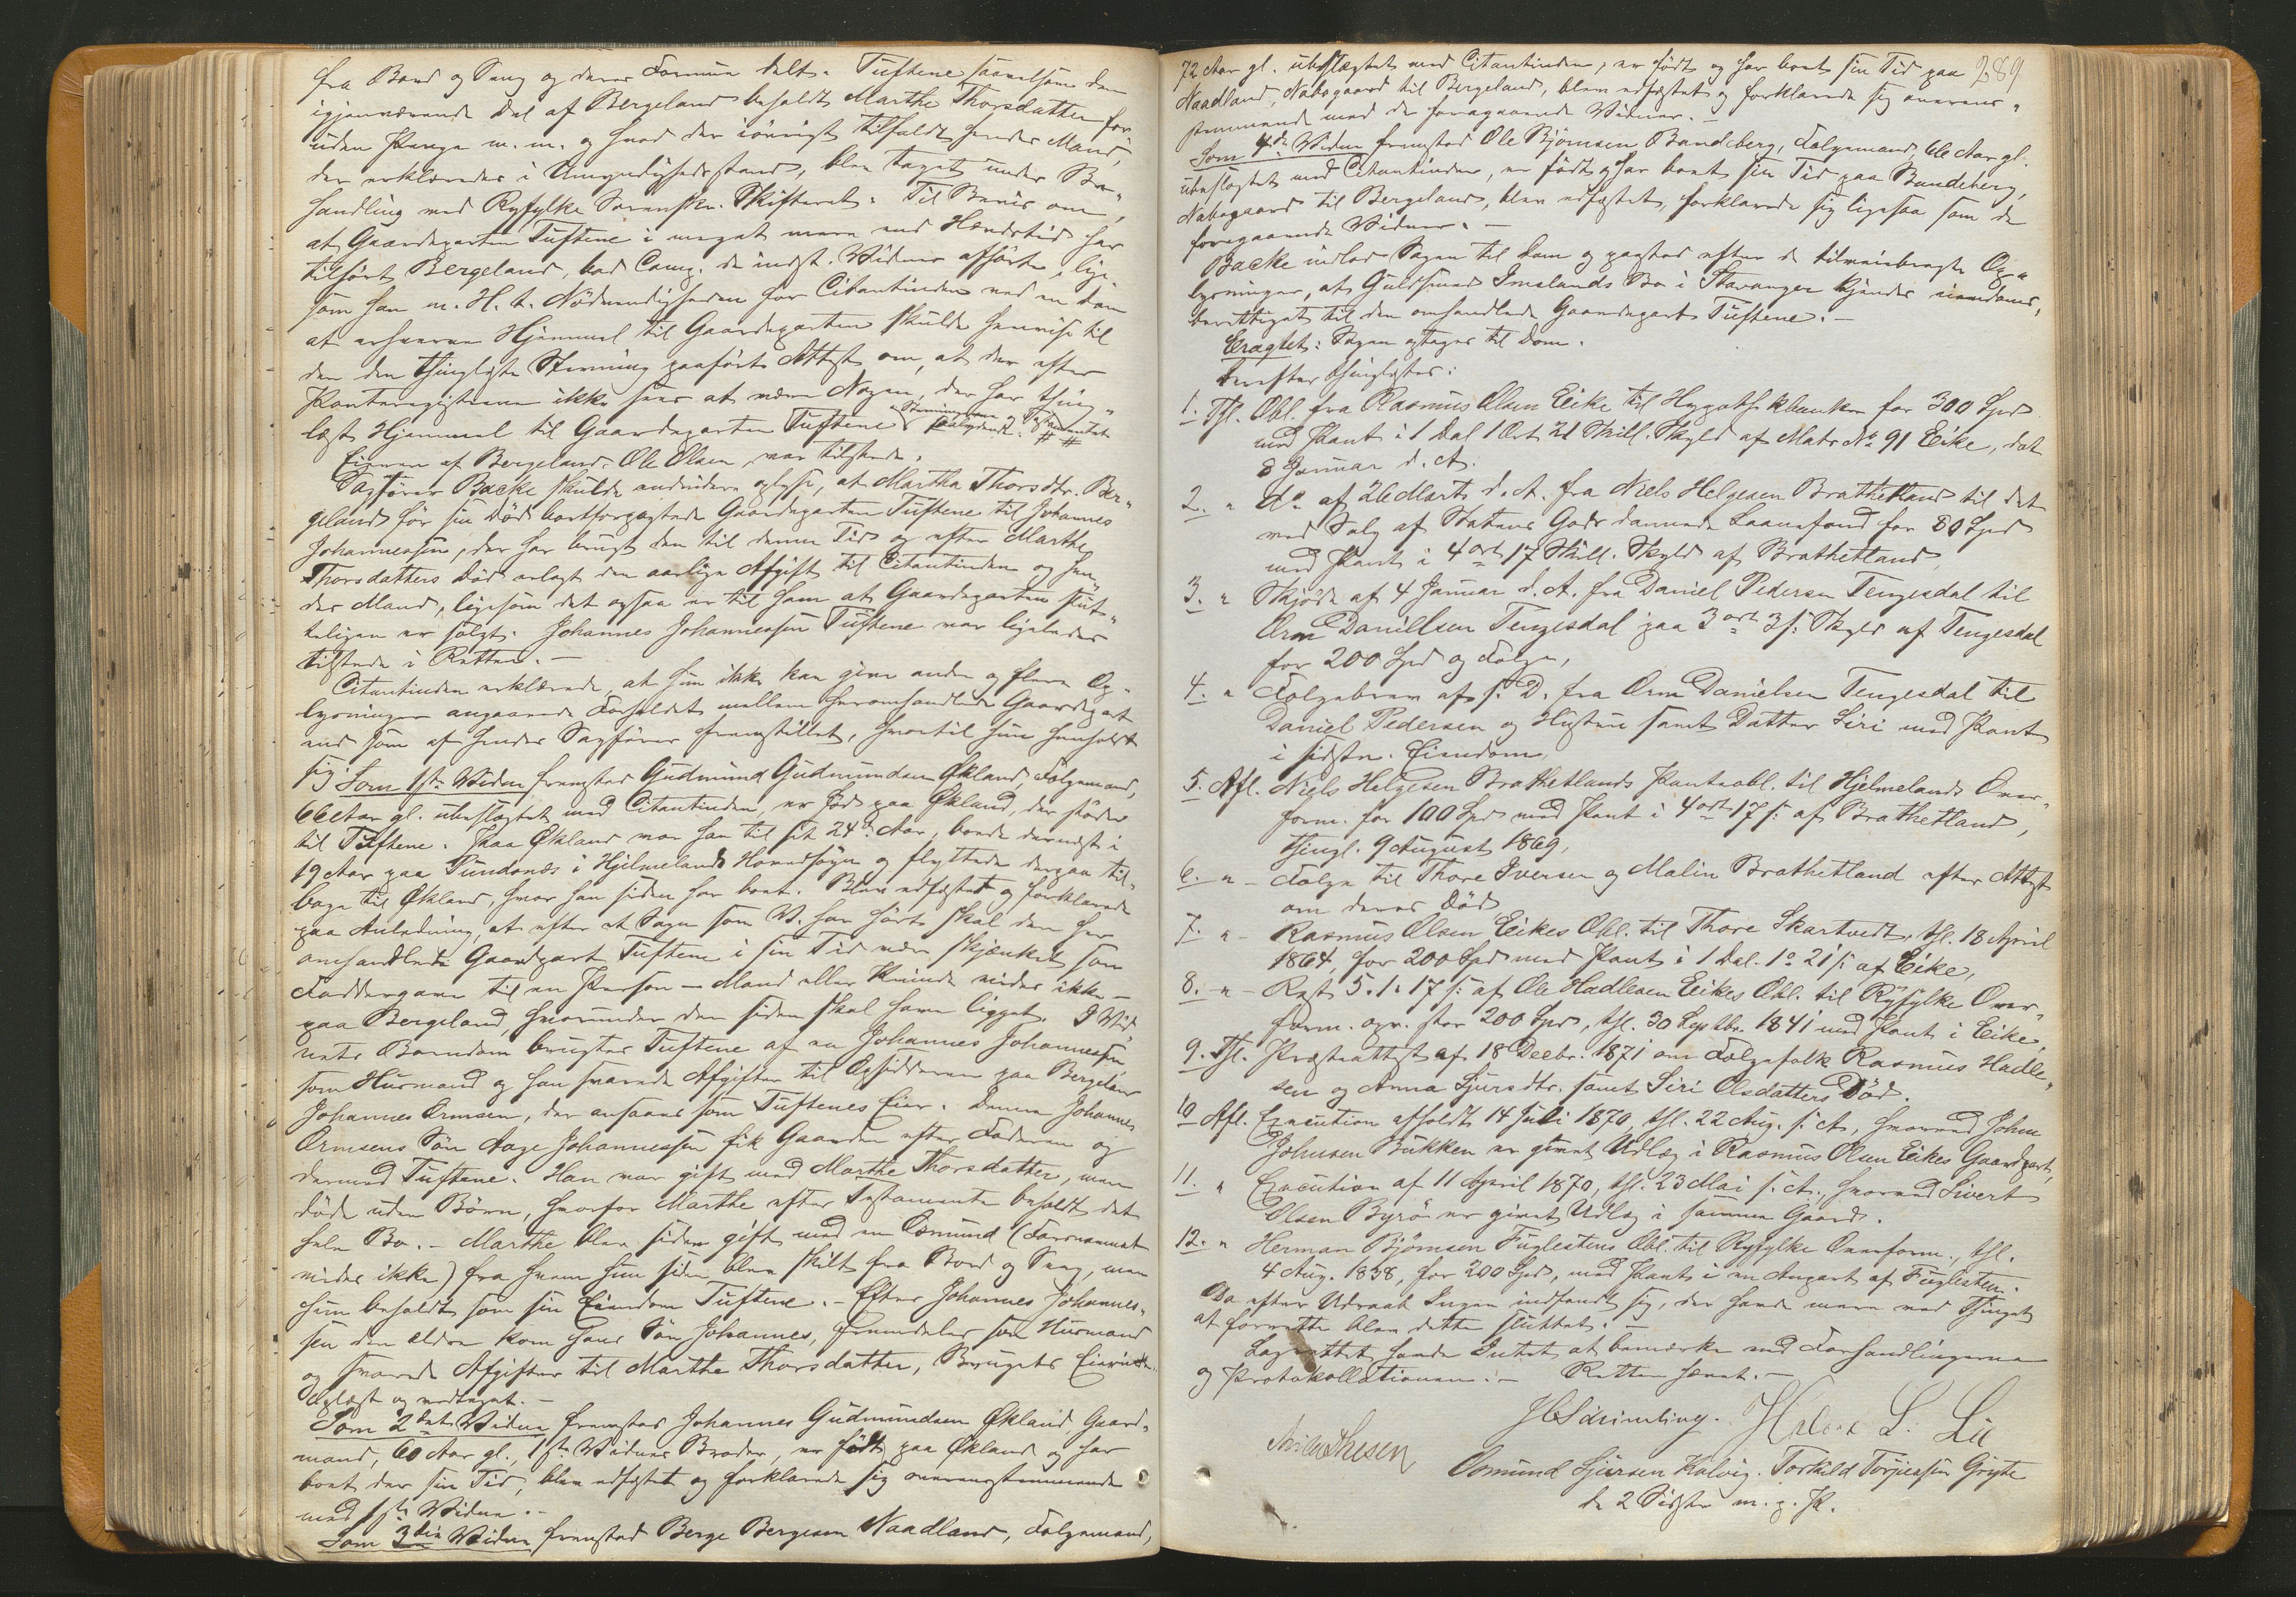 fra Bord og Seng og deres Formue delt. Tuftene saavelsom den
igjenværende Del af Bergeland beholdt Marthe Thorsdatter for-
uden Penge m. m. og hvad der iøvrigt tilfaldt hendes Mand,
der erklæredes i Umyndighedsstand, blev taget under Be-
handling ved Ryfylke Sorenskr. Skifteret. Til Bevis om,
at Gaardparten Tuftene i meget mere end Hævdstid har
tilhørt Bergeland, bad Comp. de indst. Vidner afhørte, lige
som han m. H. t. Nødvendigheden for Citantinden ved en Dom
at erhverve Hjemmel til Gaardparten skulde henvise til
den den thinglæste Stevning paaførte Attest om, at der efter
Panteregisterne ikke sees at være Nogen, der har thing-
læst Hjemmel til Gaardparten Tuftene. Stevningerne og Testamentet
saalydende: # #
Eieren af Bergeland, Ole Olsen, var tilstede.
Sagfører Backe skulde endvidere oplyse, at Martha Thorsdtr. Ber-
geland før sin Død bortforpagtede Gaardparten Tuftene til Johannes
Johannessen, der har brugt den til denne Tid og efter Marthe
Thorsdatters Død erlagt den aarlige Afgift til Citantinden og hen-
des Mand, ligesom det ogsaa er til ham at Gaardparten slut-
teligen er solgt. Johannes Johannessen Tuftene var ligeledes
tilstede i Retten. —
Citantinden erklærede at hun ikke kan give andre og flere Op-
lysninger angaaende Forholdet mellem heromhandlede Gaardpart
end som af hendes Sagfører fremstillet, hvortil hun henholdt
sig. Som 1ste Vidne fremstod Gudmund Gudmundsen Økland, Folgemand,
66 Aar gl. ubeslægtet med Citantinden, er født paa Økland, der støder
til Tuftene. Paa Økland var han til sit 24de Aar, boede dernæst i
19 Aar paa Tundenæs i Hjelmelands Hovedsogn og flyttede derpaa til-
bage til Økland, hvor han siden har boet. Blev edfæstet og forklarede
paa Anledning, at efter et Sagn som V. har hørt skal den her
omhandlede Gaardpart Tuftene i sin Tid være skjænket som
Faddergave til en Person — Mand eller Kvinde vides ikke —
paa Bergeland, hvorunder den siden skal have ligget. I Vid-
nets Barndom brugtes Tuftene af en Johannes Johannessen
som Husmand og han svarede Afgifter til Opsidderen paa Bergeland
Johannes Ormsen, der ansaaes som Tuftenes Eier. Denne Johannes
Ormsens Søn Aage Johannessen fik Gaarden efter Faderen og
dermed Tuftene. Han var gift med Marthe Thorsdatter, men
døde uden Børn, hvorfor Marthe efter Testamente beholdt det
hele Bo. — Marthe blev siden gift med en Osmund (Farsnavnet
vides ikke) fra hvem hun siden blev skilt fra Bord og Seng, men
hun beholdt som sin Eiendom Tuftene. — Efter Johannes Johannes-
sen den ældre kom hans Søn Johannes, fremdeles som Husmand
og svarede Afgifter til Marthe Thorsdatter, Brugets Eierinde.
Oplæst og vedtaget. —
Som 2det Vidne fremstod Johannes Gudmundsen Økland Gaard-
mand, 60 Aar gl., 1ste Vidnes Broder, er født paa Økland og har
boet der sin Tid, blev edfæstet og forklarede sig overensstemmende
med 1ste Vidne. —
Som 3die Vidne fremstod Berge Bergesen Naadland, Folgemand,
289
72 Aar gl. ubeslægtet med Citantinden, er født og har boet sin Tid paa
Naadland, Nabogaard til Bergeland, blev edfæstet og forklarede sig overens-
stemmende med de foregaaende Vidner. —
Som 4de Vidne fremstod Ole Bjørnsen Bandeberg, Folgemand, 66 Aar gl.
ubeslægtet med Citantinden, er født og har boet sin Tid paa Bandeberg,
Nabogaard til Bergeland, blev edfæstet, forklarede sig ligesaa som de
foregaaende Vidner. —
Backe indlod Sagen til Dom og paastod efter de tilveiebragte Op-
lysninger, at Guldsmed Imslands Bo i Stavanger kjendes eiendoms-
berettiget til den omhandlede Gaardpart Tuftene. —
Eragtet: Sagen optages til Dom.
Derefter thinglæstes:
1. Thl. Obl. fra Rasmus Olsen Eike til Hypothekbanken for 300 Spd
med Pant i 1 Dal 1 Ort 21 Skill. Skyld af Matr No 91 Eike, dat
8 Januar d. A.
2. " Do af 26 Marts d. A. fra Niels Helgesen Brathetland til det
ved Salg af Statens Gods dannede Laanefond for 80 Spd
med Pant i 4 ort 17 Skill. Skyld af Brathetland,
3. " Skjøde af 4 Januar d. A. fra Daniel Pedersen Tengesdal til
Orm Danielsen Tengesdal paa 3 ort 3 s: Skyld af Tengesdal
for 200 Spd og Folge,
4. " Folgebrev af s. D. fra Orm Danielsen Tengesdal til
Daniel Pedersen og Hustru samt Datter Siri med Pant
i sidstn. Eiendom,
5. Afl. Niels Helgesen Brathetlands Panteobl. til Hjelmelands Over-
form. for 100 Spd med Pant i 4 ort 17 s: af Brathetland,
thingl. 9 August 1869,
6. " – Folge til Thore Iversen og Malin Brathetland efter Attest
om deres Død
7. " – Rasmus Olsen Eikes Obl. til Thore Skartvedt, thl. 18 April
1864, for 200 Spd med Pant i 1 Dal. 1 o 21 s: af Eike,
8. – " – Rest 5. 1. 17 s: af Ole Hadlesen Eikes Obl. til Ryfylke Over-
form. opr. stor 200 Spd, thl. 30 Septbr. 1841 med Pant i Eike,
9. Thl. Præsteattest af 18 Decbr. 1871 om Folgefolk Rasmus Hadle-
sen og Anna Sjursdtr. samt Siri Olsdatters Død.
10 Afl. Execution afholdt 14 Juli 1870, thl. 22 Aug. s. A., hvorved John
Johnsen Bukken er givet Udlæg i Rasmus Olsen Eikes Gaardpart,
11. " Execution af 11 April 1870, thl. 23 Mai s. A., hvorved Sivert
Olsen Byrø er givet Udlæg i samme Gaard.
12. " Herman Bjørnsen Fuglestens Obl. til Ryfylke Overform., thl.
4 Aug. 1838, for 200 Spd, med Pant i en Anpart af Fuglesten.
Da efter Udraab Ingen indfandt sig, der havde mere ved Thinget
at forrette blev dette sluttet. —
Lagrettet havde Intet at bemærke ved Forhandlingerne
og Protokollationen. — Retten hævet. —
Halvor L. Lie
Osmund Sjursen Kalvig. Torkild Torjussen Gryte
de 2 Sidste m. p. P.